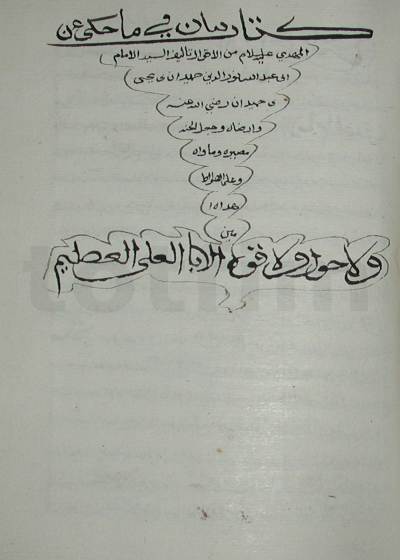 كتاب بيان في ما حكي عن
المهدي عليه السلام من الاقوال تاليف السيد الامام
ابي عبد الله نور الدين حميدان بن يحيى
بن حميدان رضي الله عنه
وارضاه وجعل الجنه
مصيره وماواه
وعلى الصراط
هداه ا
مين
ولا حول ولا قوه الا بالله العلي العظيم